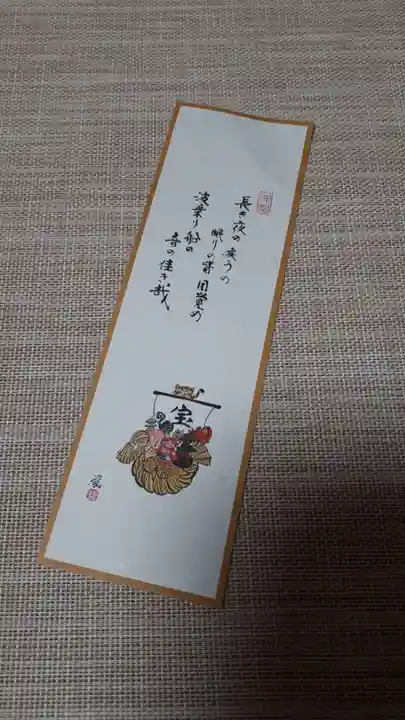 長き夜の遠うの
眠りの皆目覚め
波乗り船の
音の佳き哉
宝